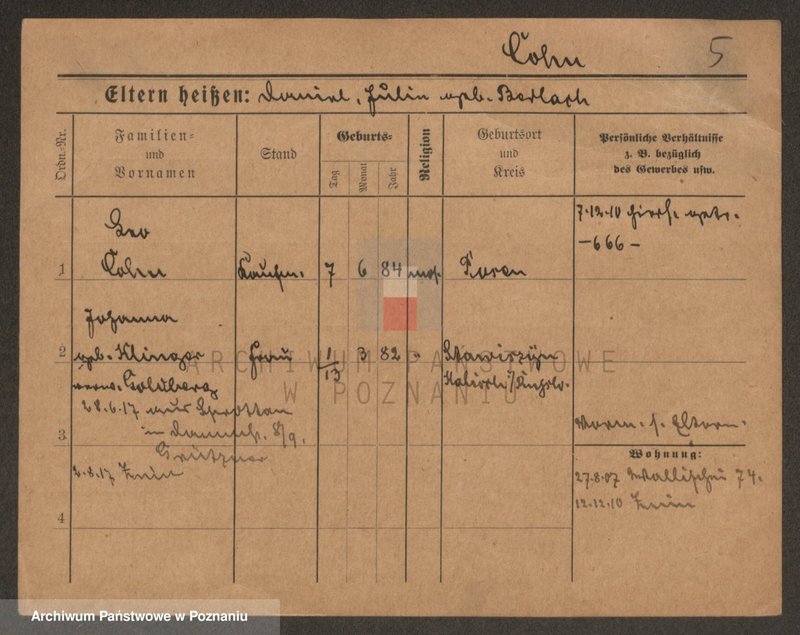 Cohn 5
Eltern heißen: Daniel, Julie geb. Berlach
Ordn.-Nr.
Familien-
und
Vornamen
Stand
Geburts-
Tag
Monat
Jahr
Religion
Geburtsort
und
Kreis
Persönliche Verhältnisse
z. B. bezüglich
des Gewerbes usw.
7.12.10
-666-
Leo
1 Cohn Kaufm. 7 6 84 mos. Posen
Johanna
2 geb. Klinger Frau 1/13 3 82 "
verw. Goldberg
28.6.17 aus Sprottau
in Dammstr. 8/9.
3
2.8.17 Znin
4
s. Eltern.
Wohnung:
27.8.07 Wallischei 74.
12.12.10 Znin
ARCHIWUM PAŃSTWOWE
W POZNANIU
Archiwum Państwowe w Poznaniu